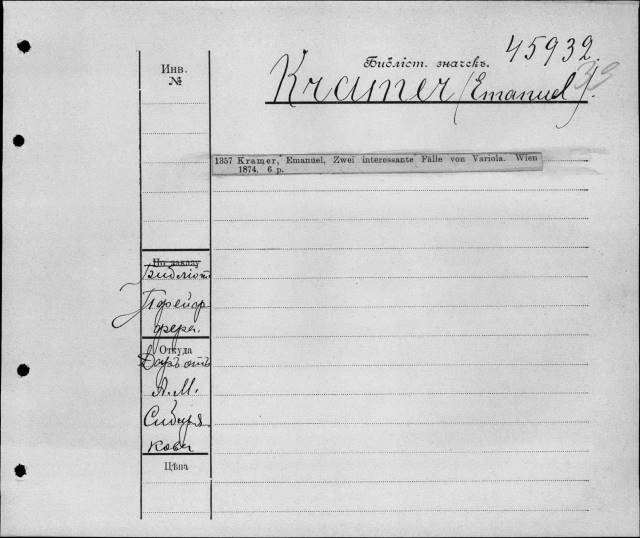 45932.
Библіот. значекъ.
Инв.
№
Kramer (Emanuel).
1357 Kramer, Emanuel, Zwei interessante Fälle von Variola. Wien
1874. 6 p.
По заказу
Библіот.
Пфейф
фера.
Откуда
Даръ отъ
А. М.
Сибиря
кова
Цѣна